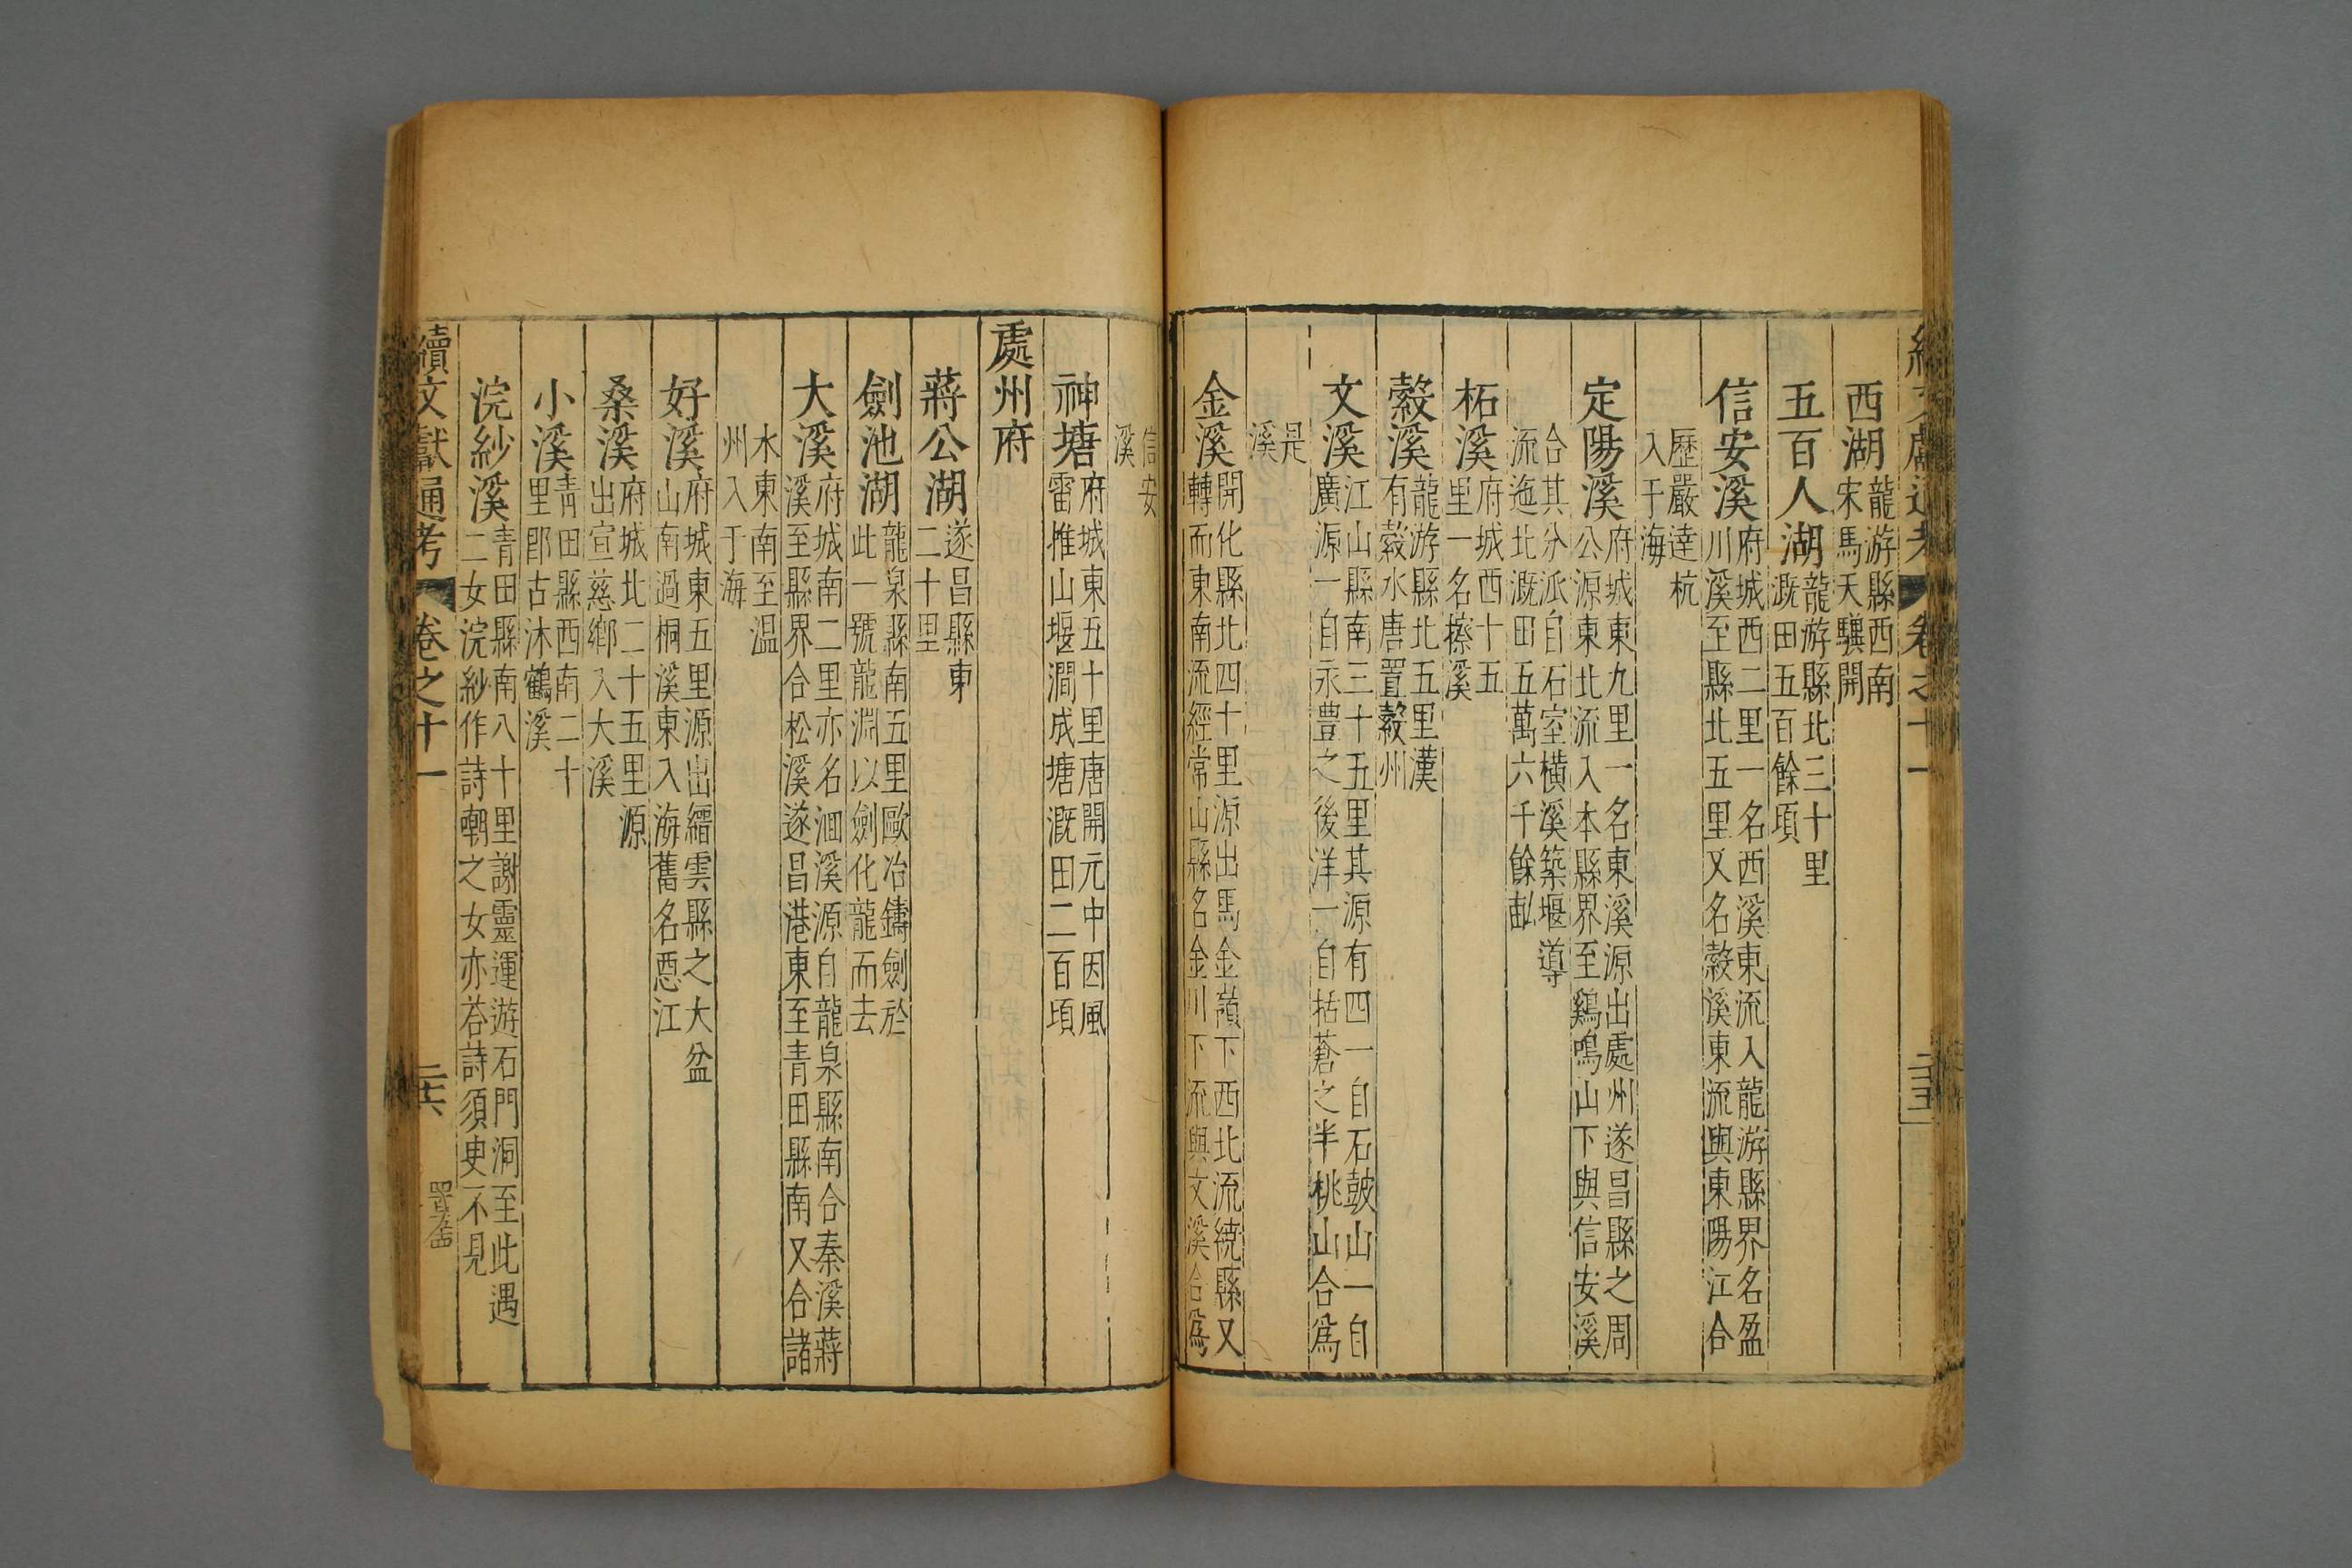 續文獻通考 卷之十一 二十五
西湖 龍游縣西南宋馬天驥開
五百人湖 龍游縣北三十里溉田五百餘頃
信安溪 府城西二里一名西溪東流入龍游縣界名盈川溪至縣北五里又名縠溪東流與東陽江合
歷嚴達杭入于海
定陽溪 府城東九里一名東溪源出處州遂昌縣之周公源東北流入本縣界至鷄鳴山下與信安溪
合其分派自石室橫溪築堰導流迤北溉田五萬六千餘畝
柘溪 府城西十五里一名檫溪
縠溪 龍游縣北五里漢有縠水唐置縠州
文溪 江山縣南三十五里其源有四一自石皷山一自廣源一自永豐之後洋一自括蒼之半桃山合爲
是溪
金溪 開化縣北四十里源出馬金嶺下西北流繞縣又轉而東南流經常山縣名金川下流與文溪合爲
信安溪
神塘 府城東五十里唐開元中因風雷摧山堰澗成塘溉田二百頃
處州府
蔣公湖 遂昌縣東二十里
劍池湖 龍泉縣南五里歐冶鑄劍於此一號龍淵以劍化龍而去
大溪 府城南二里亦名洄溪源自龍泉縣南合秦溪蔣溪至縣界合松溪遂昌港東至青田縣南又合諸
水東南至温州入于海
好溪 府城東五里源出縉雲縣之大盆山南過桐溪東入海舊名惡江
桑溪 府城北二十五里源出宣慈鄉入大溪
小溪 青田縣西南二十里郎古沐鶴溪
浣紗溪 青田縣南八十里謝靈運遊石門洞至此遇二女浣紗作詩嘲之女亦答詩須臾不見
續文獻通考 卷之十一 二十六